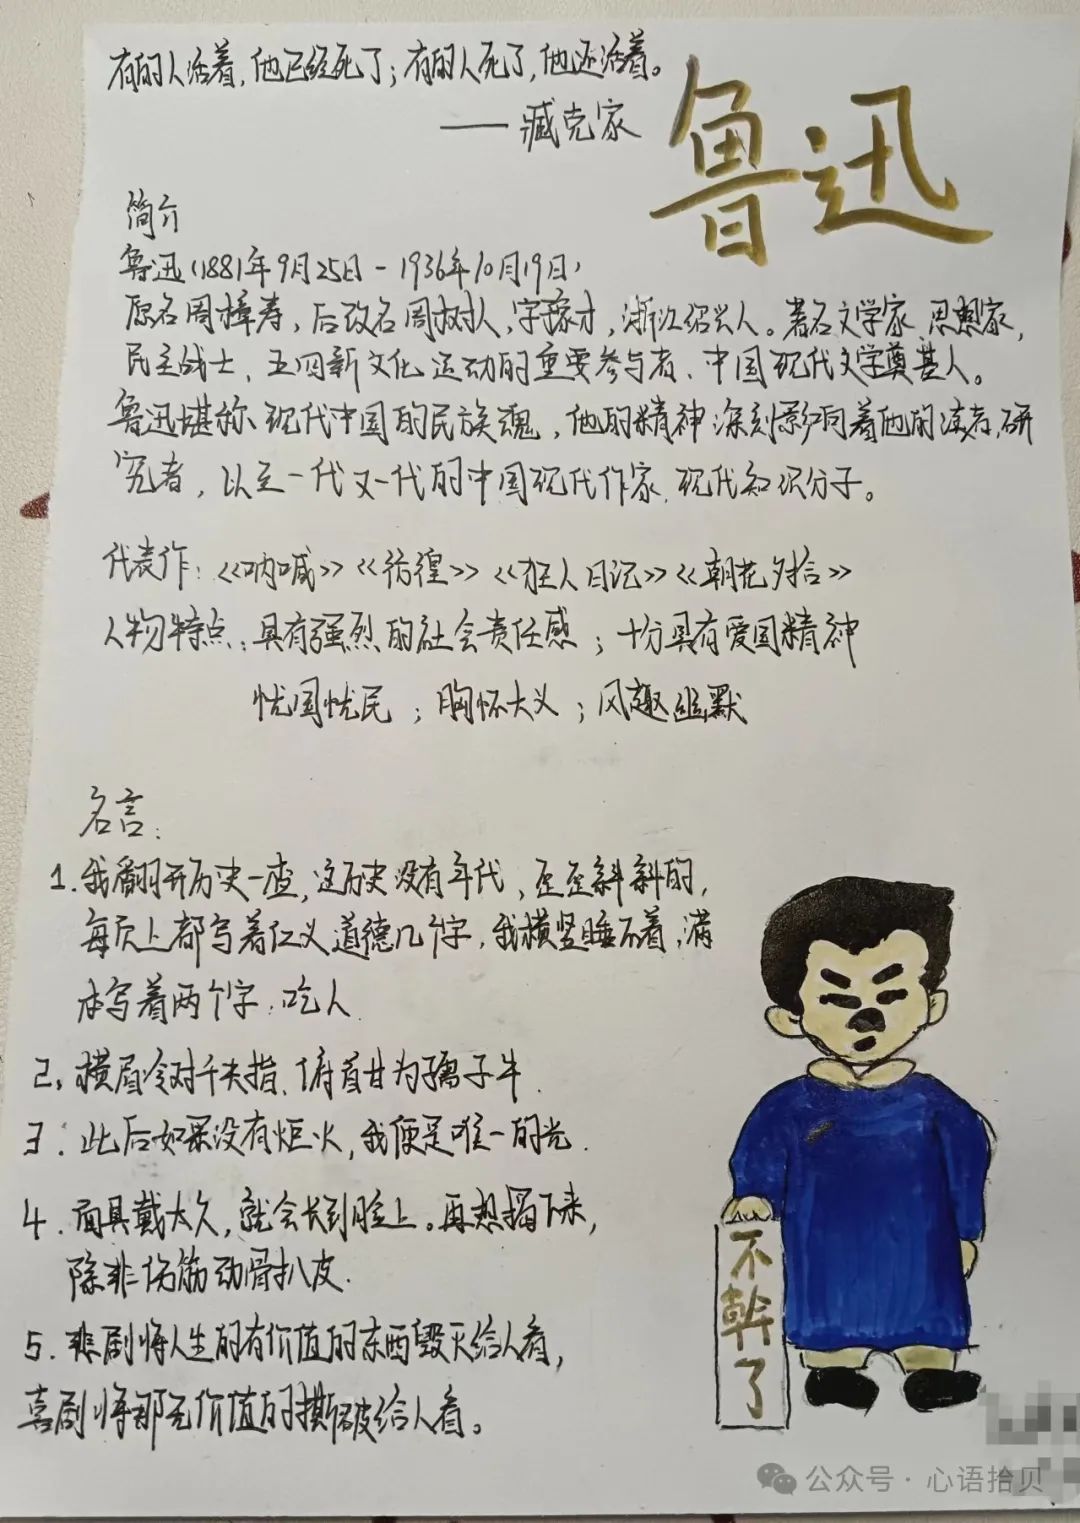 有的人活着，他已经死了；有的人死了，他还活着。
——臧克家
鲁迅
简介
鲁迅（1881年9月25日-1936年10月19日）
原名周樟寿，后改名周树人，字豫才，浙江绍兴人。著名文学家、思想家，
民主战士，五四新文化运动的重要参与者、中国现代文学奠基人。
鲁迅堪称现代中国的民族魂，他的精神深刻影响着他的读者、研
究者，以至一代又一代的中国现代作家、现代知识分子。
代表作：《呐喊》《彷徨》《狂人日记》《朝花夕拾》
人物特点：具有强烈的社会责任感；十分具有爱国精神
忧国忧民；胸怀大义；风趣幽默
名言：
1.我翻开历史一查，这历史没有年代，歪歪斜斜的，
每页上都写着仁义道德几个字，我横竖睡不着，满
本写着两个字：吃人
2.横眉冷对千夫指、俯首甘为孺子牛.
3.此后如果没有炬火，我便是唯一的光.
4.面具戴太久，就会长到脸上。再想揭下来，
除非伤筋动骨扒皮.
5.悲剧将人生的有价值的东西毁灭给人看，
喜剧将那无价值的撕破给人看。
不幹了
公众号·心语拾贝